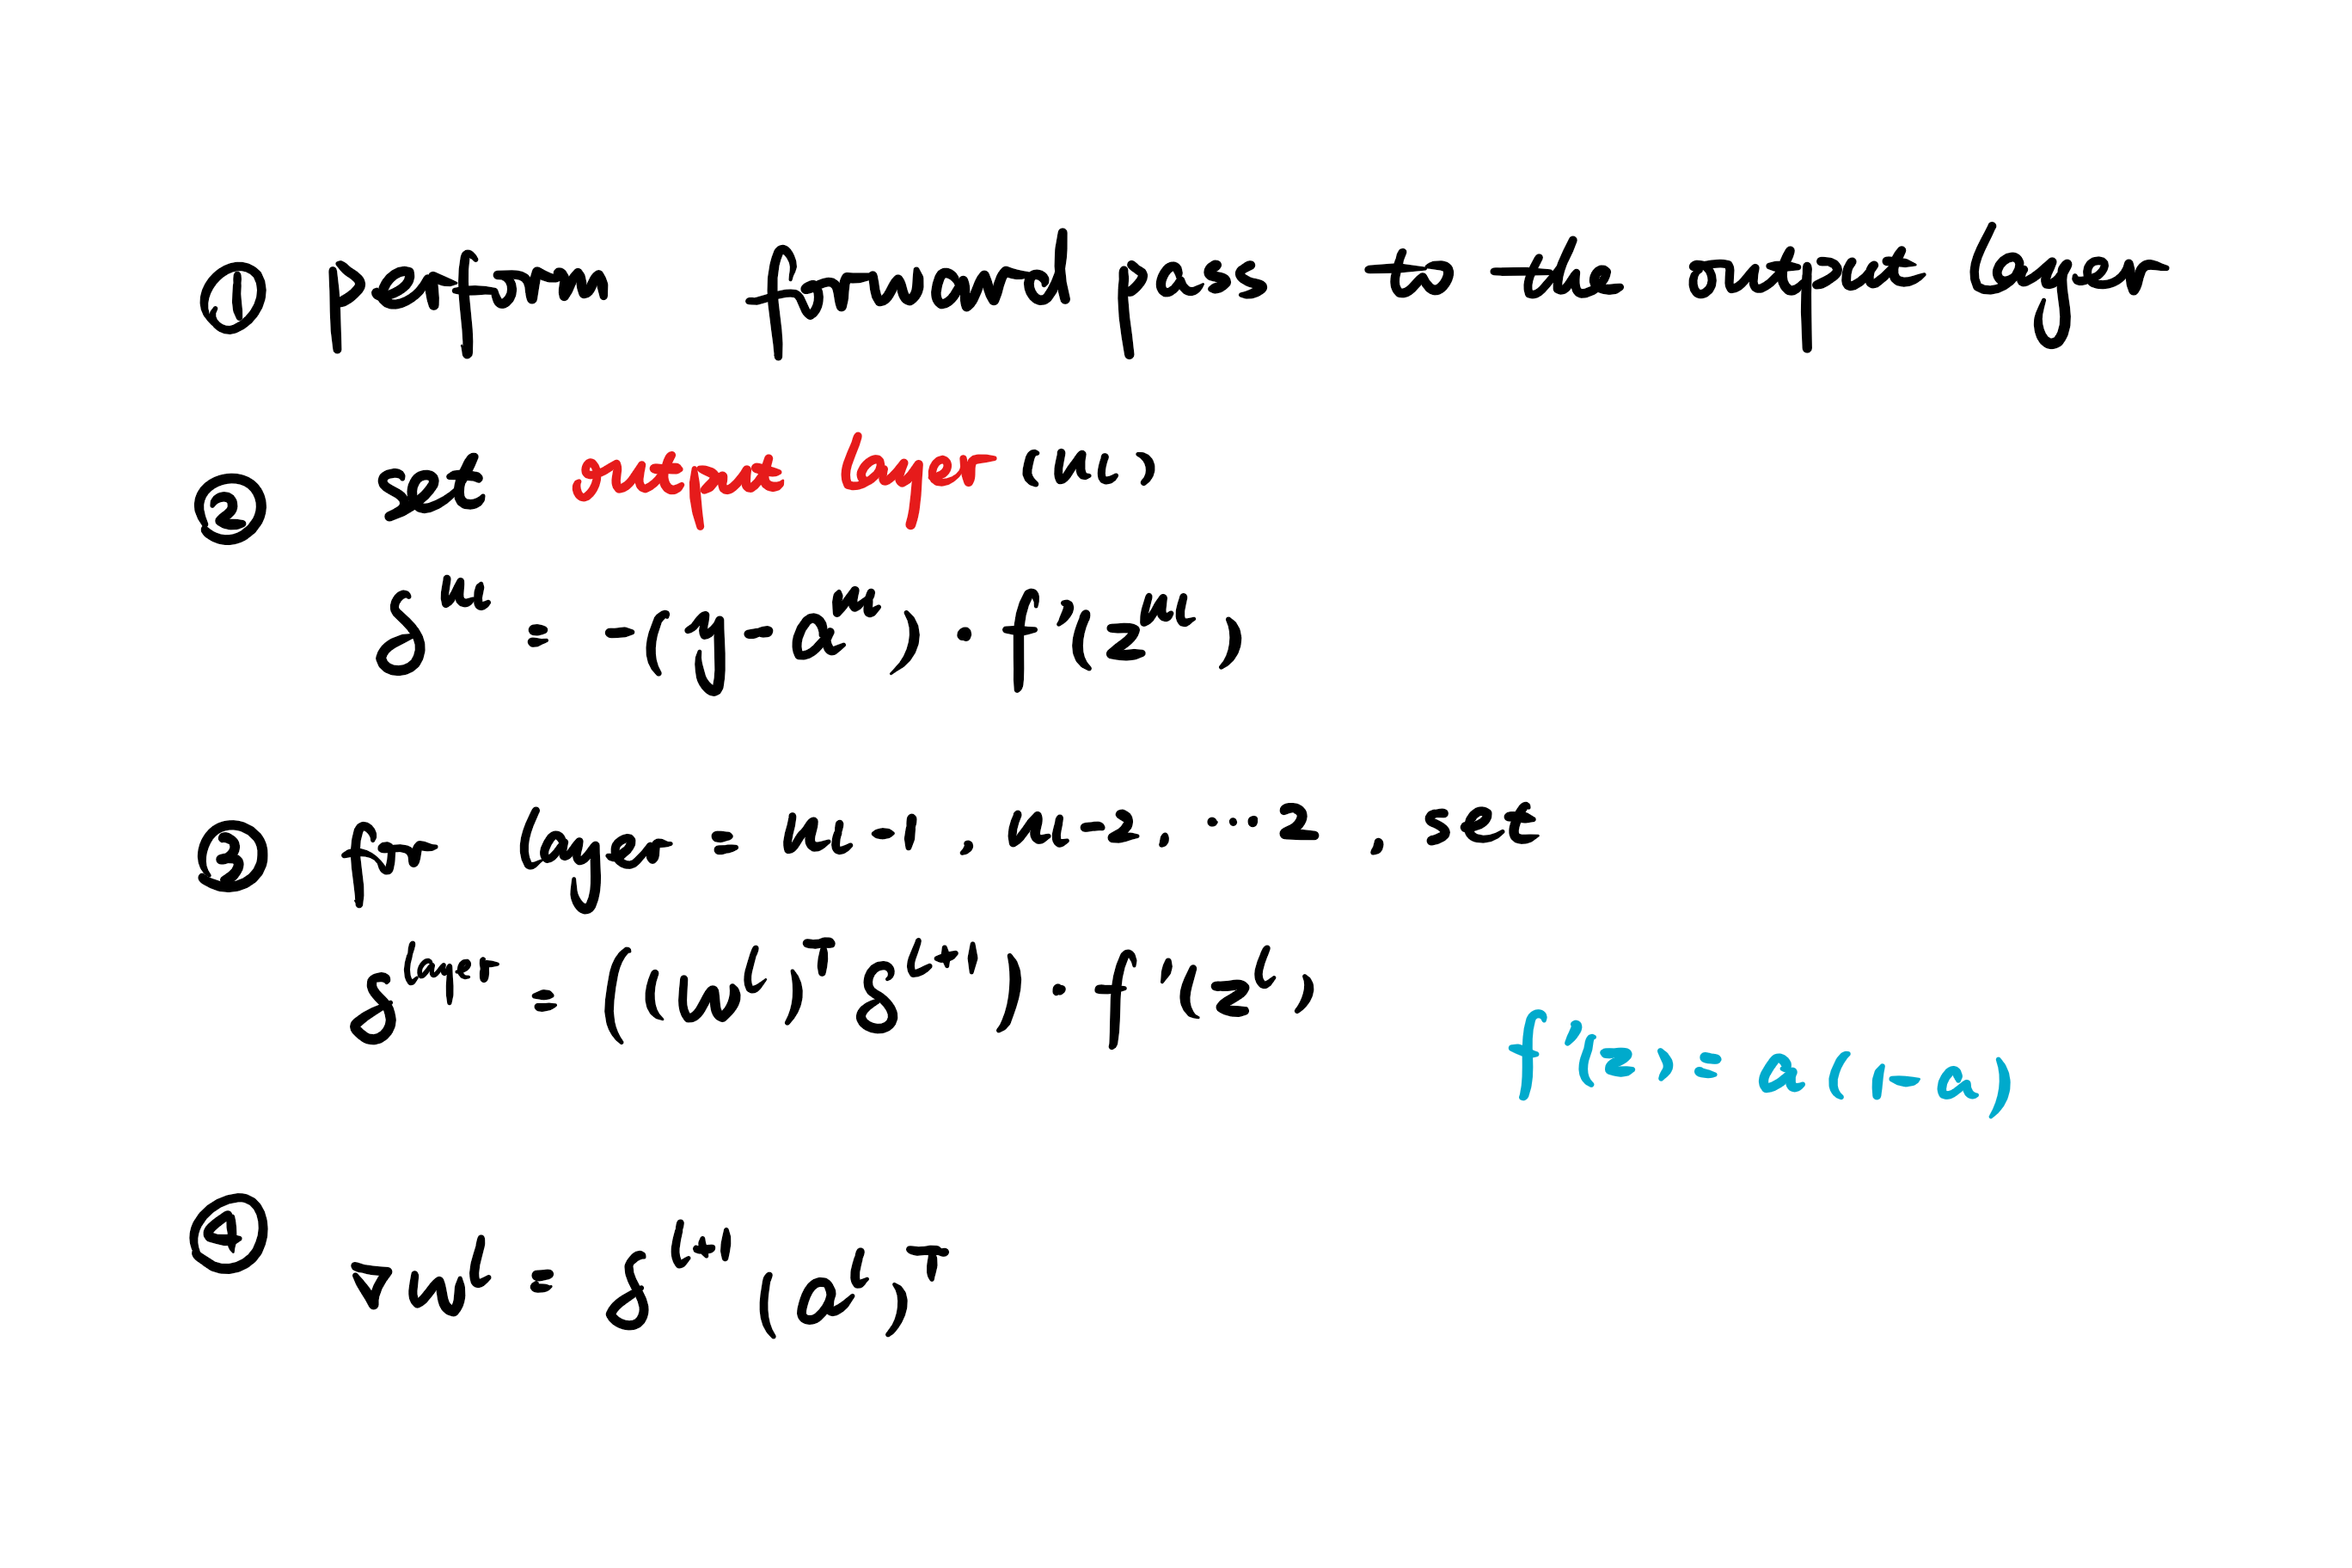 ① perform forward pass to the output layer
② set output layer (nl)
δ^nl = -(y - a^nl) · f'(z^nl)
③ for layer = nl-1, nl-2, ... 2, set
δ^layer = ((W^l)^T δ^l+1) · f'(z^l)
f'(z) = a(1-a)
④
∇w^l = δ^l+1 (a^l)^T